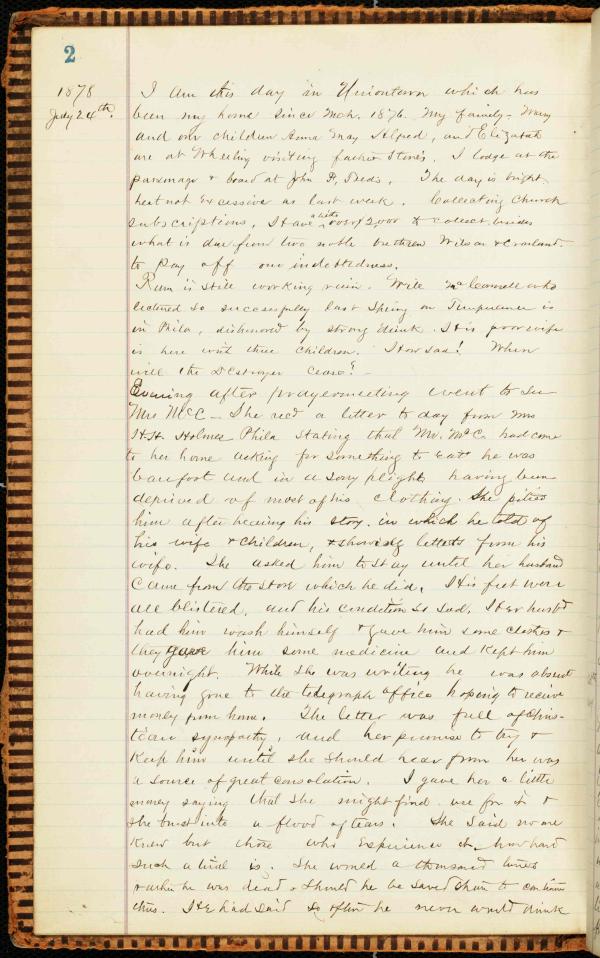 2
1878
July 24th.
I am this day in Uniontown which has
been my home since Mch. 1876. My family - Mary
and our children Anna May Alfred, and Elizabeth
are at Wheeling visiting father Stone's. I lodge at the
parsonage & board at John P, . The day is bright
heat not excessive as last week. Collecting church
subscriptions, I have a little over $2,000 to collect besides
what is due from two noble brethren Wilson &
to pay off our indebtedness.
Rum is still working ruin. Will McConnell who
lectured so successfully last Spring on Temperance is
in Phila, dishonored by strong drink. His poor wife
is here with three children. How Sad! When
will the Destroyer cease? -
Evening after prayermeeting went to see
Mrs McC - She recd a letter to day from Mrs
H. H. Holmes Phila stating that Mr. McC. had come
to her home asking for something to eat he was
barefoot and in a sorry plight having been
deprived of most of his clothing. She pitied
him after hearing his story. in which he told of
his wife & children, & showing letters from his
wife. She asked him to stay until her husband
came from the store which he did. His feet were
all blistered, and his condition so sad. Her husbd
had him wash himself & gave him some clothes &
they gave him some medicine and kept him
overnight. While she was writing he was absent
having gone to the telegraph office hoping to receive
money from home. The letter was full of Chris-
tian sympathy, and her promise to try &
keep him until she should hear from her was
a source of great consolation. I gave her a little
money saying that she might find use for it &
she burst into a flood of tears. She said no one
knew but those who experience it how hard
such a trial is. She would a thousand times
rather he was dead & should he be saved than to continue
thus. He had said so often he never would drink